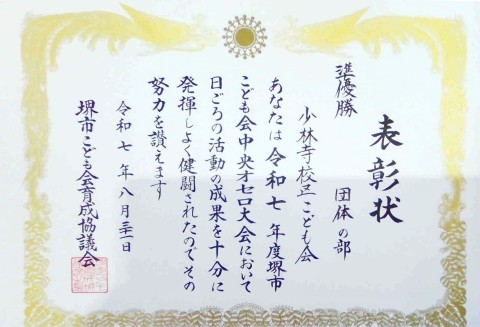 表彰状
準優勝 団体の部
少林寺校区こども会
あなたは令和七年度堺市
こども会中央オセロ大会において
日ごろの活動の成果を十分に
発揮しよく健闘されたのでその
努力を讃えます
令和七年八月三十一日
堺市こども会育成協議会